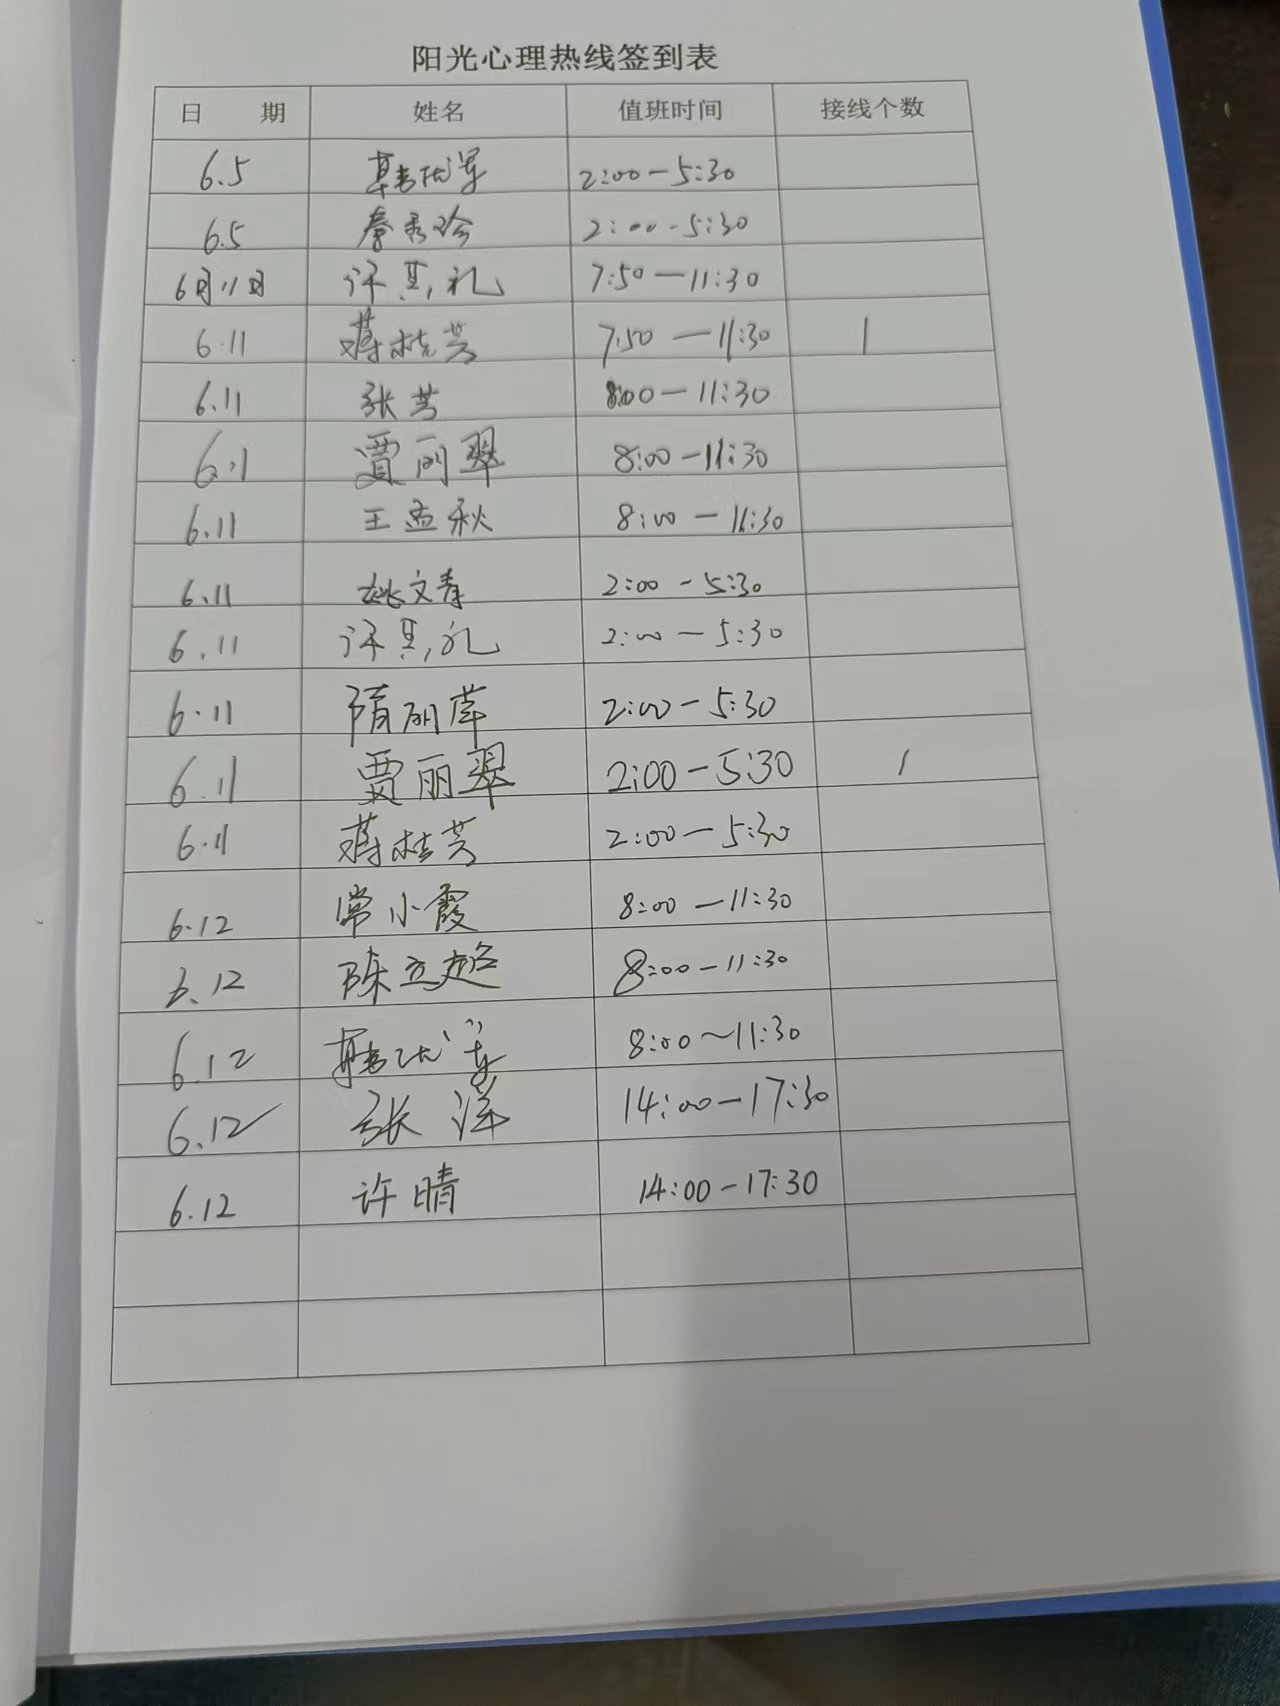 阳光心理热线签到表
日 期 姓名 值班时间 接线个数
6.5 2:00-5:30
6.5 秦秀玲 2:00-5:30
6月11日 7:50-11:30
6.11 蒋桂芳 7:50-11:30 1
6.11 张芳 8:00-11:30
6.11 贾丽翠 8:00-11:30
6.11 王孟秋 8:00-11:30
6.11 姚文春 2:00-5:30
6.11 2:00-5:30
6.11 隋丽萍 2:00-5:30
6.11 贾丽翠 2:00-5:30 1
6.11 蒋桂芳 2:00-5:30
6.12 常小霞 8:00-11:30
6.12 陈立超 8:00-11:30
6.12 8:00~11:30
6.12 张洋 14:00-17:30
6.12 许晴 14:00-17:30